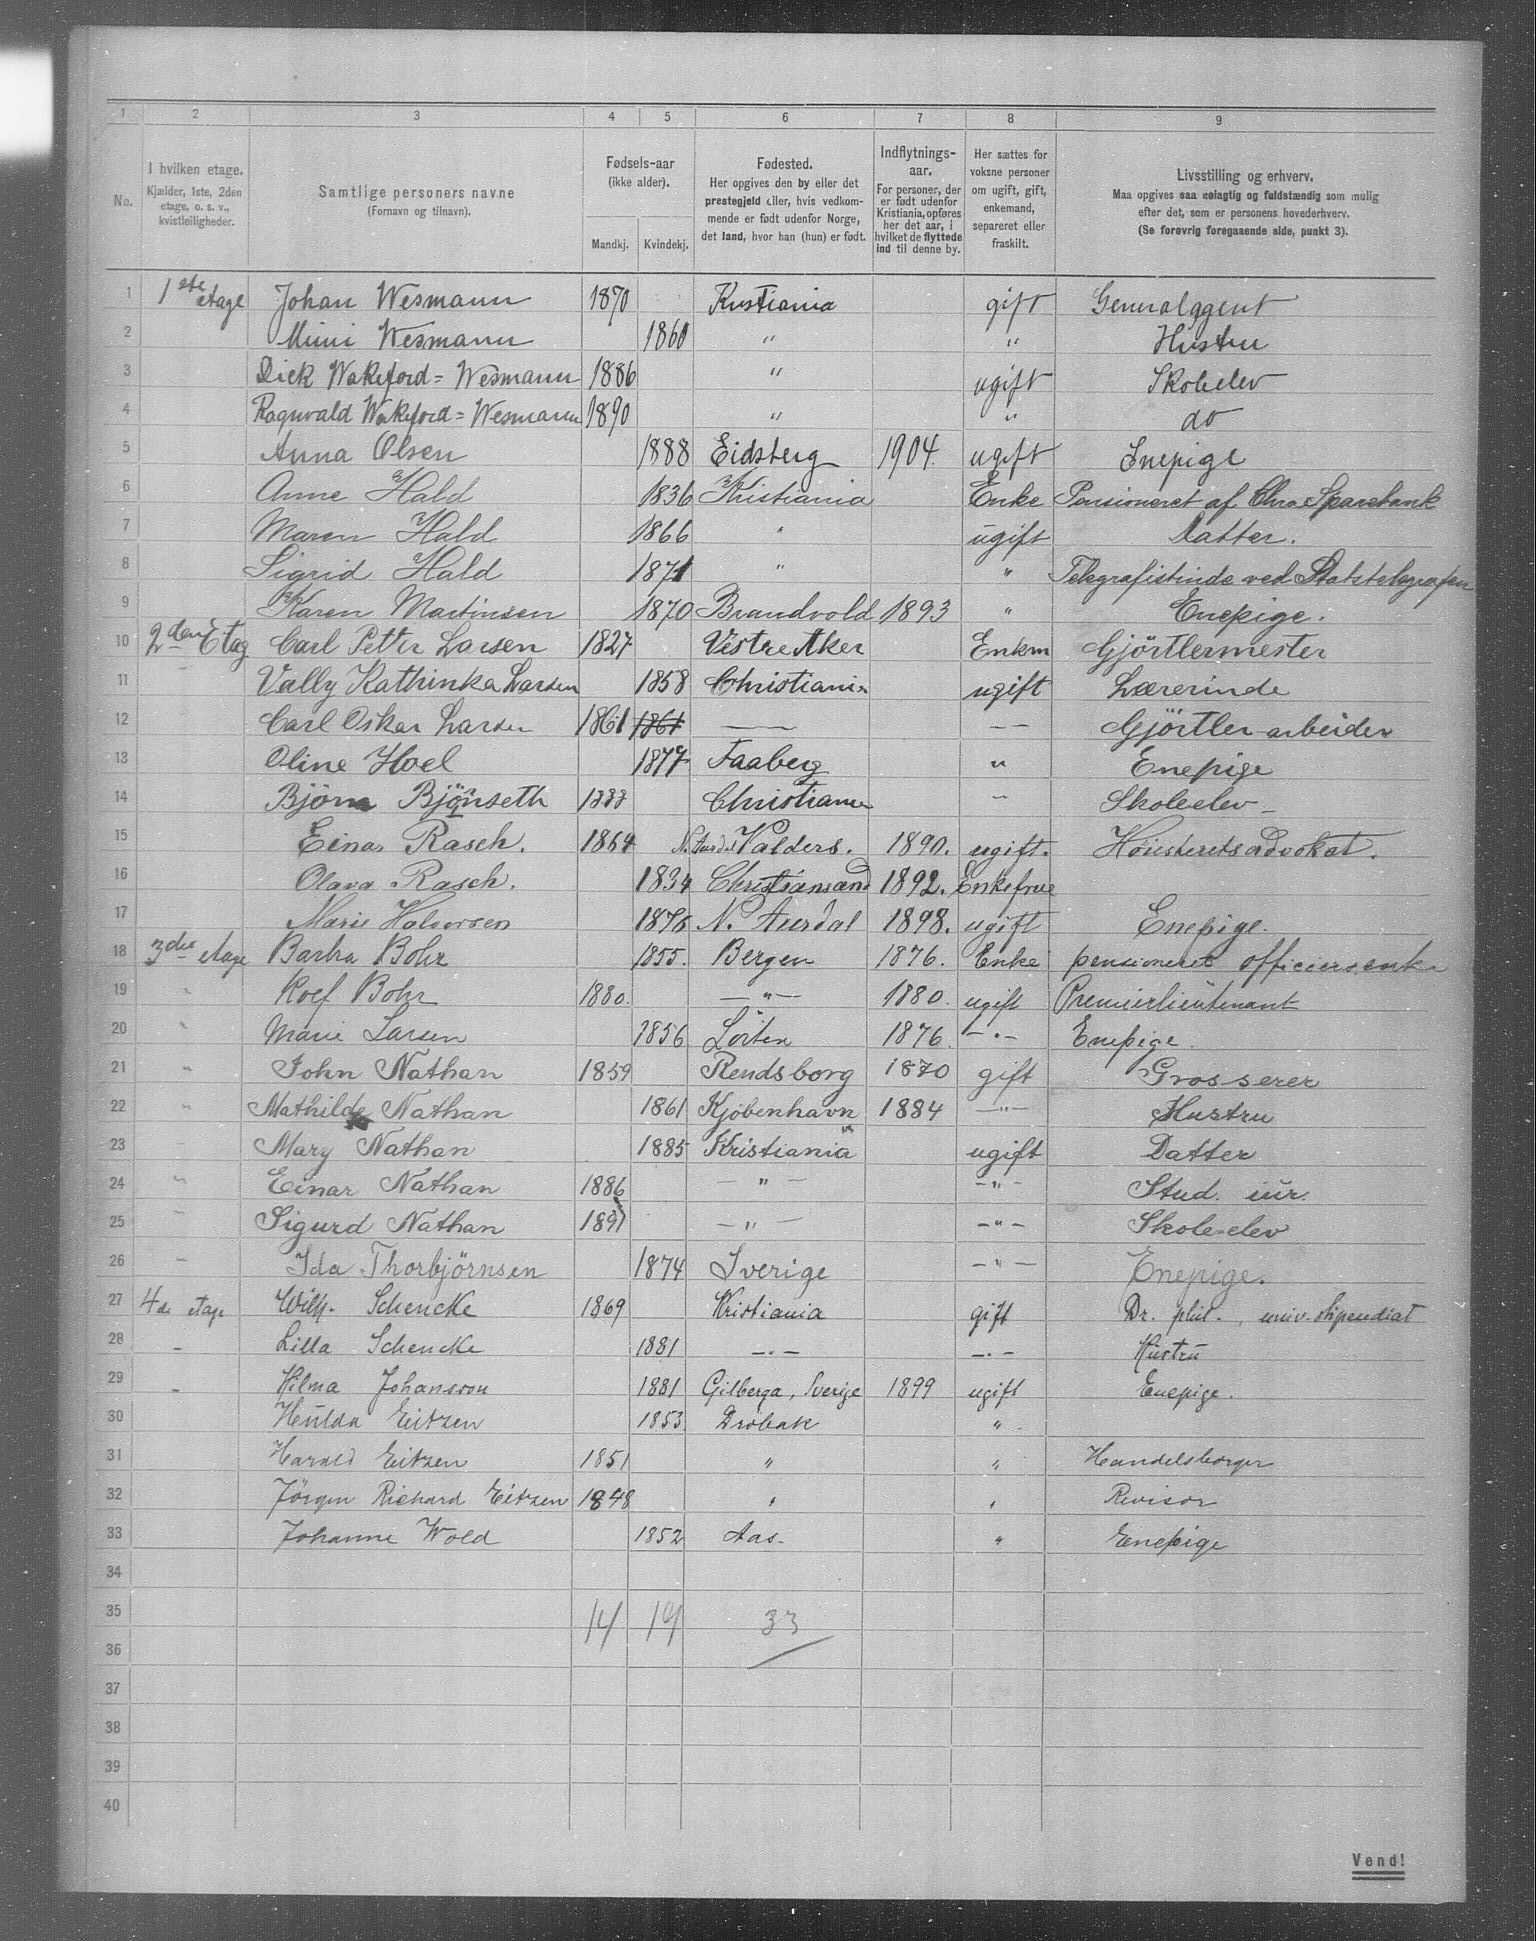 1 2 3 4 5 6 7 8 9
No.
I hvilken etage.
Kjælder, 1ste, 2den
etage, o. s. v.,
kvistleiligheder.
Samtlige personers navne
(Fornavn og tilnavn).
Fødsels-aar
(ikke alder).
Mandkj. Kvindekj.
Fødested.
Her opgives den by eller det
prestegjeld eller, hvis vedkom-
mende er født udenfor Norge,
det land, hvor han (hun) er født.
Indflytnings-
aar.
For personer, der
er født udenfor
Kristiania, opføres
her det aar, i
hvilket de flyttede
ind til denne by.
Her sættes for
voksne personer
om ugift, gift,
enkemand,
separeret eller
fraskilt.
Livsstilling og erhverv.
Maa opgives saa nøiagtig og fuldstændig som mulig
efter det, som er personens hovederhverv.
(Se forøvrig foregaaende side, punkt 3).
1 1ste etage Johan Wesmann 1870 Kristiania gift Generalagent
2 Mimi Wesmann 1860 " " Hustru
3 Dick Wakeford = Wesmann 1886 " ugift Skoleelev
4 Ragnvald Wakeford = Wesmann 1890 " " do
5 Anna Olsen 1888 Eidsberg 1904. ugift Enepige
6 Anne Hald 1836 Kristiania Enke Pensioneret af Chra Sparebank
7 Maren Hald 1866 " ugift Datter.
8 Sigrid Hald 1871 " " Telegrafistinde ved Statstelegrafen
9 Karen Martinsen 1870 Brandvold 1893 " Enepige.
10 2den Etag Carl Petter Larsen 1827 Vestre Aker Enkm Gjörtlermester
11 Vally Kathinka Larsen 1858 Christiania ugift Lærerinde
12 Carl Oskar Larsen 1861 1861 — — Gjörtler-arbeider
13 Oline Hoel 1877 Faaberg " Enepige
14 Björn Björnseth 1888 Christiania " Skoleelev
15 Einar Rasch. 1864 N. Aurdal Valders. 1890. ugift. Höiesteretsadvokat.
16 Olava Rasch. 1834 Christiansand 1892. Enkefrue
17 Marie Halvorsen 1876 N. Aurdal 1898. ugift Enepige.
18 3die etage Barbra Bohr 1855. Bergen 1876. Enke pensioneret officiersenke
19 " Rolf Bohr 1880. —"— 1880. ugift Premierlieutenant
20 " Marie Larsen 1856 Löiten 1876. —"— Enepige.
21 " John Nathan 1859 Rendsborg 1870 gift Grosserer
22 " Mathilde Nathan 1861 Kjöbenhavn 1884 —"— Hustru
23 — Mary Nathan 1885 Kristiania ugift Datter
24 " Einar Nathan 1886 —"— —"— Stud. iur.
25 — Sigurd Nathan 1891 —"— —"— Skole-elev
26 — Ida Thorbjörnsen 1874 Sverige —"— Enepige.
27 4de etage Wilh. Schencke 1869 Kristiania gift Dr. phil., univ. stipendiat
28 — Lilla Schencke 1881 —"— —"— Hüstrü
29 — Hilma Johansson 1881 Gilberga, Sverige 1899 ugift Enepige.
30 Hulda Eitzen 1853 Drøbak "
31 Harald Eitzen 1851 " " Handelsborger
32 Jörgen Richard Eitzen 1848 " " Revisor
33 Johanne Wold 1852 Aas. " Enepige
34
35 14 19 33
36
37
38
39
40
Vend!